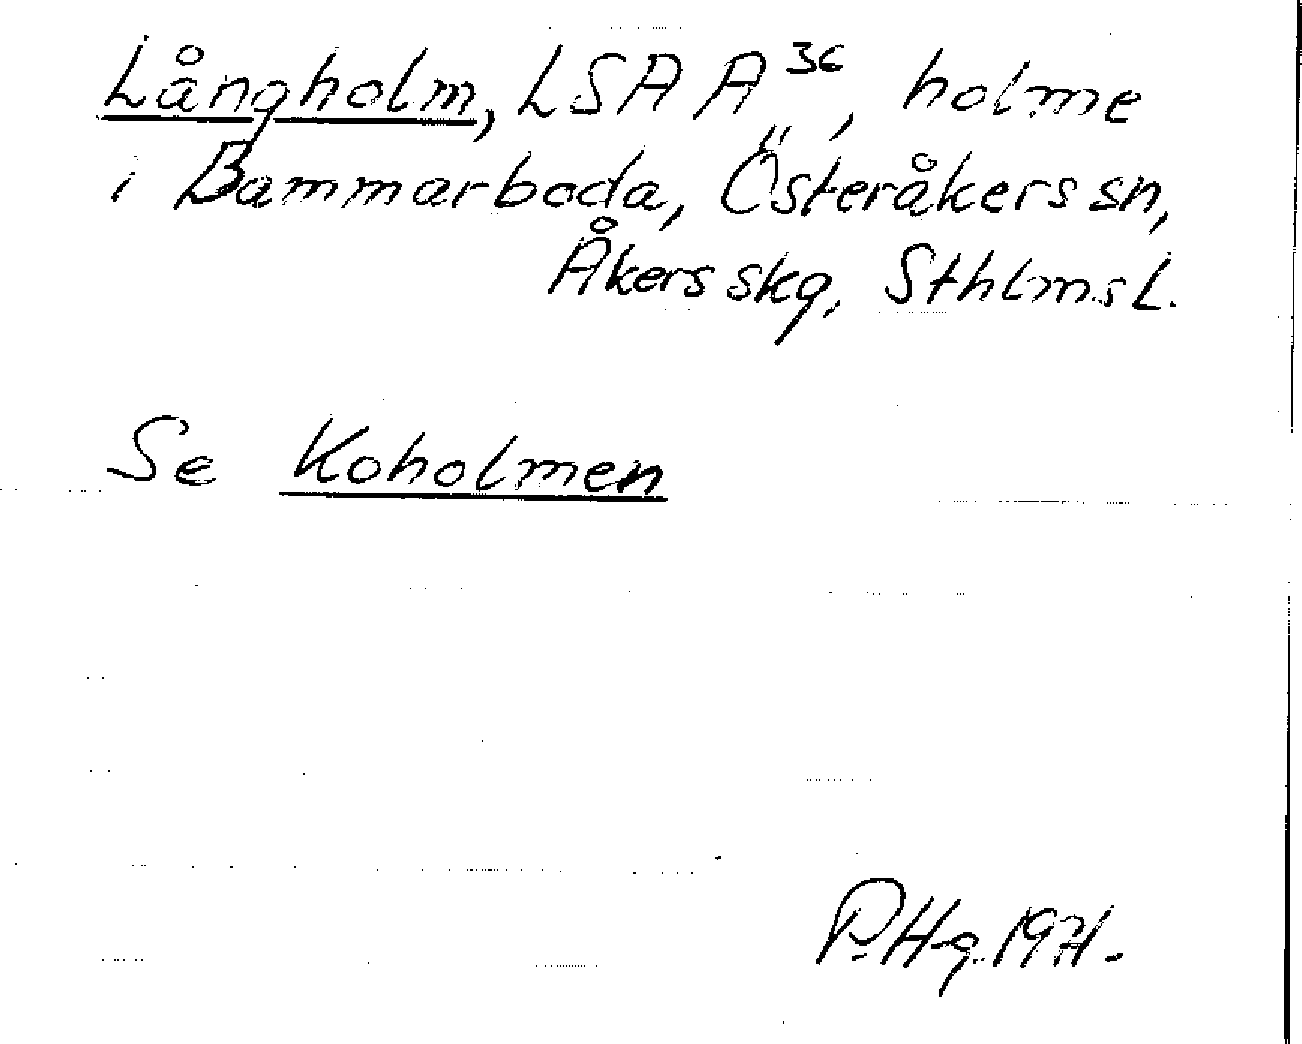 Långholm, LSA A36, holme
i Bammarboda, Österåkers sn,
Åkers skg, Sthlms L.
Se Koholmen
P. Hg. 1971.